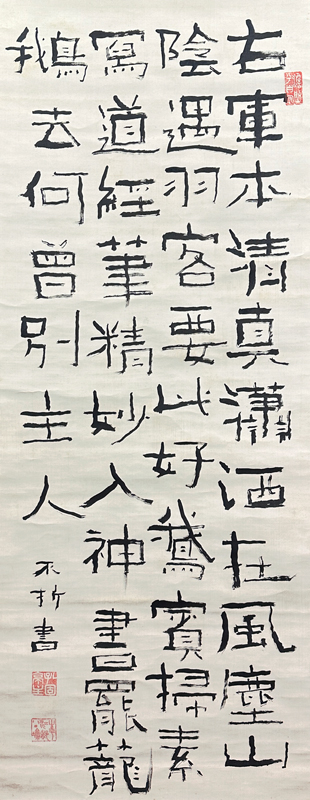 右軍本清真瀟洒在風塵山
陰遇羽客要此好鵞賓掃素
寫道經筆精妙入神書罷籠
鵝去何曾別主人
不折書